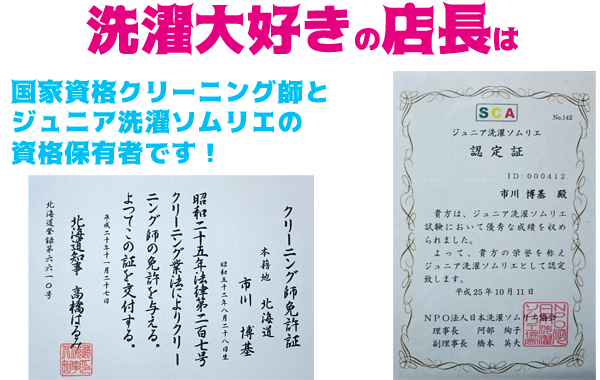 洗濯大好きの店長は
国家資格クリーニング師と
ジュニア洗濯ソムリエの
資格保有者です！
クリーニング師免許証
本籍地 北海道
市川 博基
昭和五十二年八月二十八日生
昭和二十五年法律第二百七号
クリーニング業法によりクリー
ニング師の免許を与える。
よつてこの証を交付する。
平成二十年十一月二十七日
北海道知事 高橋はるみ
北海道登録第六六一〇号
SCA
No.142
ジュニア洗濯ソムリエ
認定証
ID:000412
市川 博基 殿
貴方は、ジュニア洗濯ソムリエ
試験において優秀な成績を収め
られました。
よって、貴方の栄誉を称え
ジュニア洗濯ソムリエとして認定
致します。
平成25年10月11日
NPO法人日本洗濯ソムリエ協会
理事長 阿部 絢子
副理事長 橋本 英夫